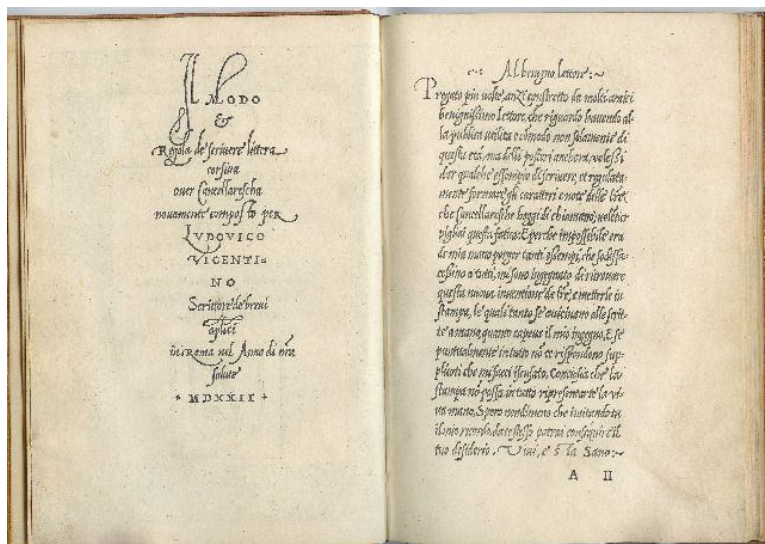 Il MODO
&
Regola de scrivere littera
corsiva
over Cancellarescha
novamente composto per
LVDOVICO
VICENTI=
NO
Scrittore de brevi
aplici
in Roma nel Anno di nr̃a
salute
+ MDXXII +
Al benigno lettore:~
Pregato piu volte, anzi constretto da molti amici
benignissimo Lettore, che riguardo havendo al-
la publica utilita e cõmodo non solamente di
questa età, ma delli posteri anchora, volessi
dar qualche essempio di scrivere, et regulata-
mente formare gli caratteri e note delle lr̃e,
che Cancellaresche hoggi di chiamano, voletier
pigliai questa fatica: E perche impossibile era
de mia mano porger tanti essempi, che sodissa-
cessino a tutti, mi sono ingegnato di ritrovare
questa nuova inventione de lr̃e, e metterle in
stampa, le quali tanto se avicinano alle scrit-
te a mano, quanto capeva il mio ingegno, E se
puntualmente in tutto nõ te rispondono, sup-
plicoti che mi facci iscusato, Conciosia che la
stampa nõ possa in tutto ripresentarte la vi-
va mano, Spero nondimeno che imitando tu
il mio ricordo, da te stesso potrai conseguire il
tuo desiderio. Vivi, e Sta Sano:~
A II